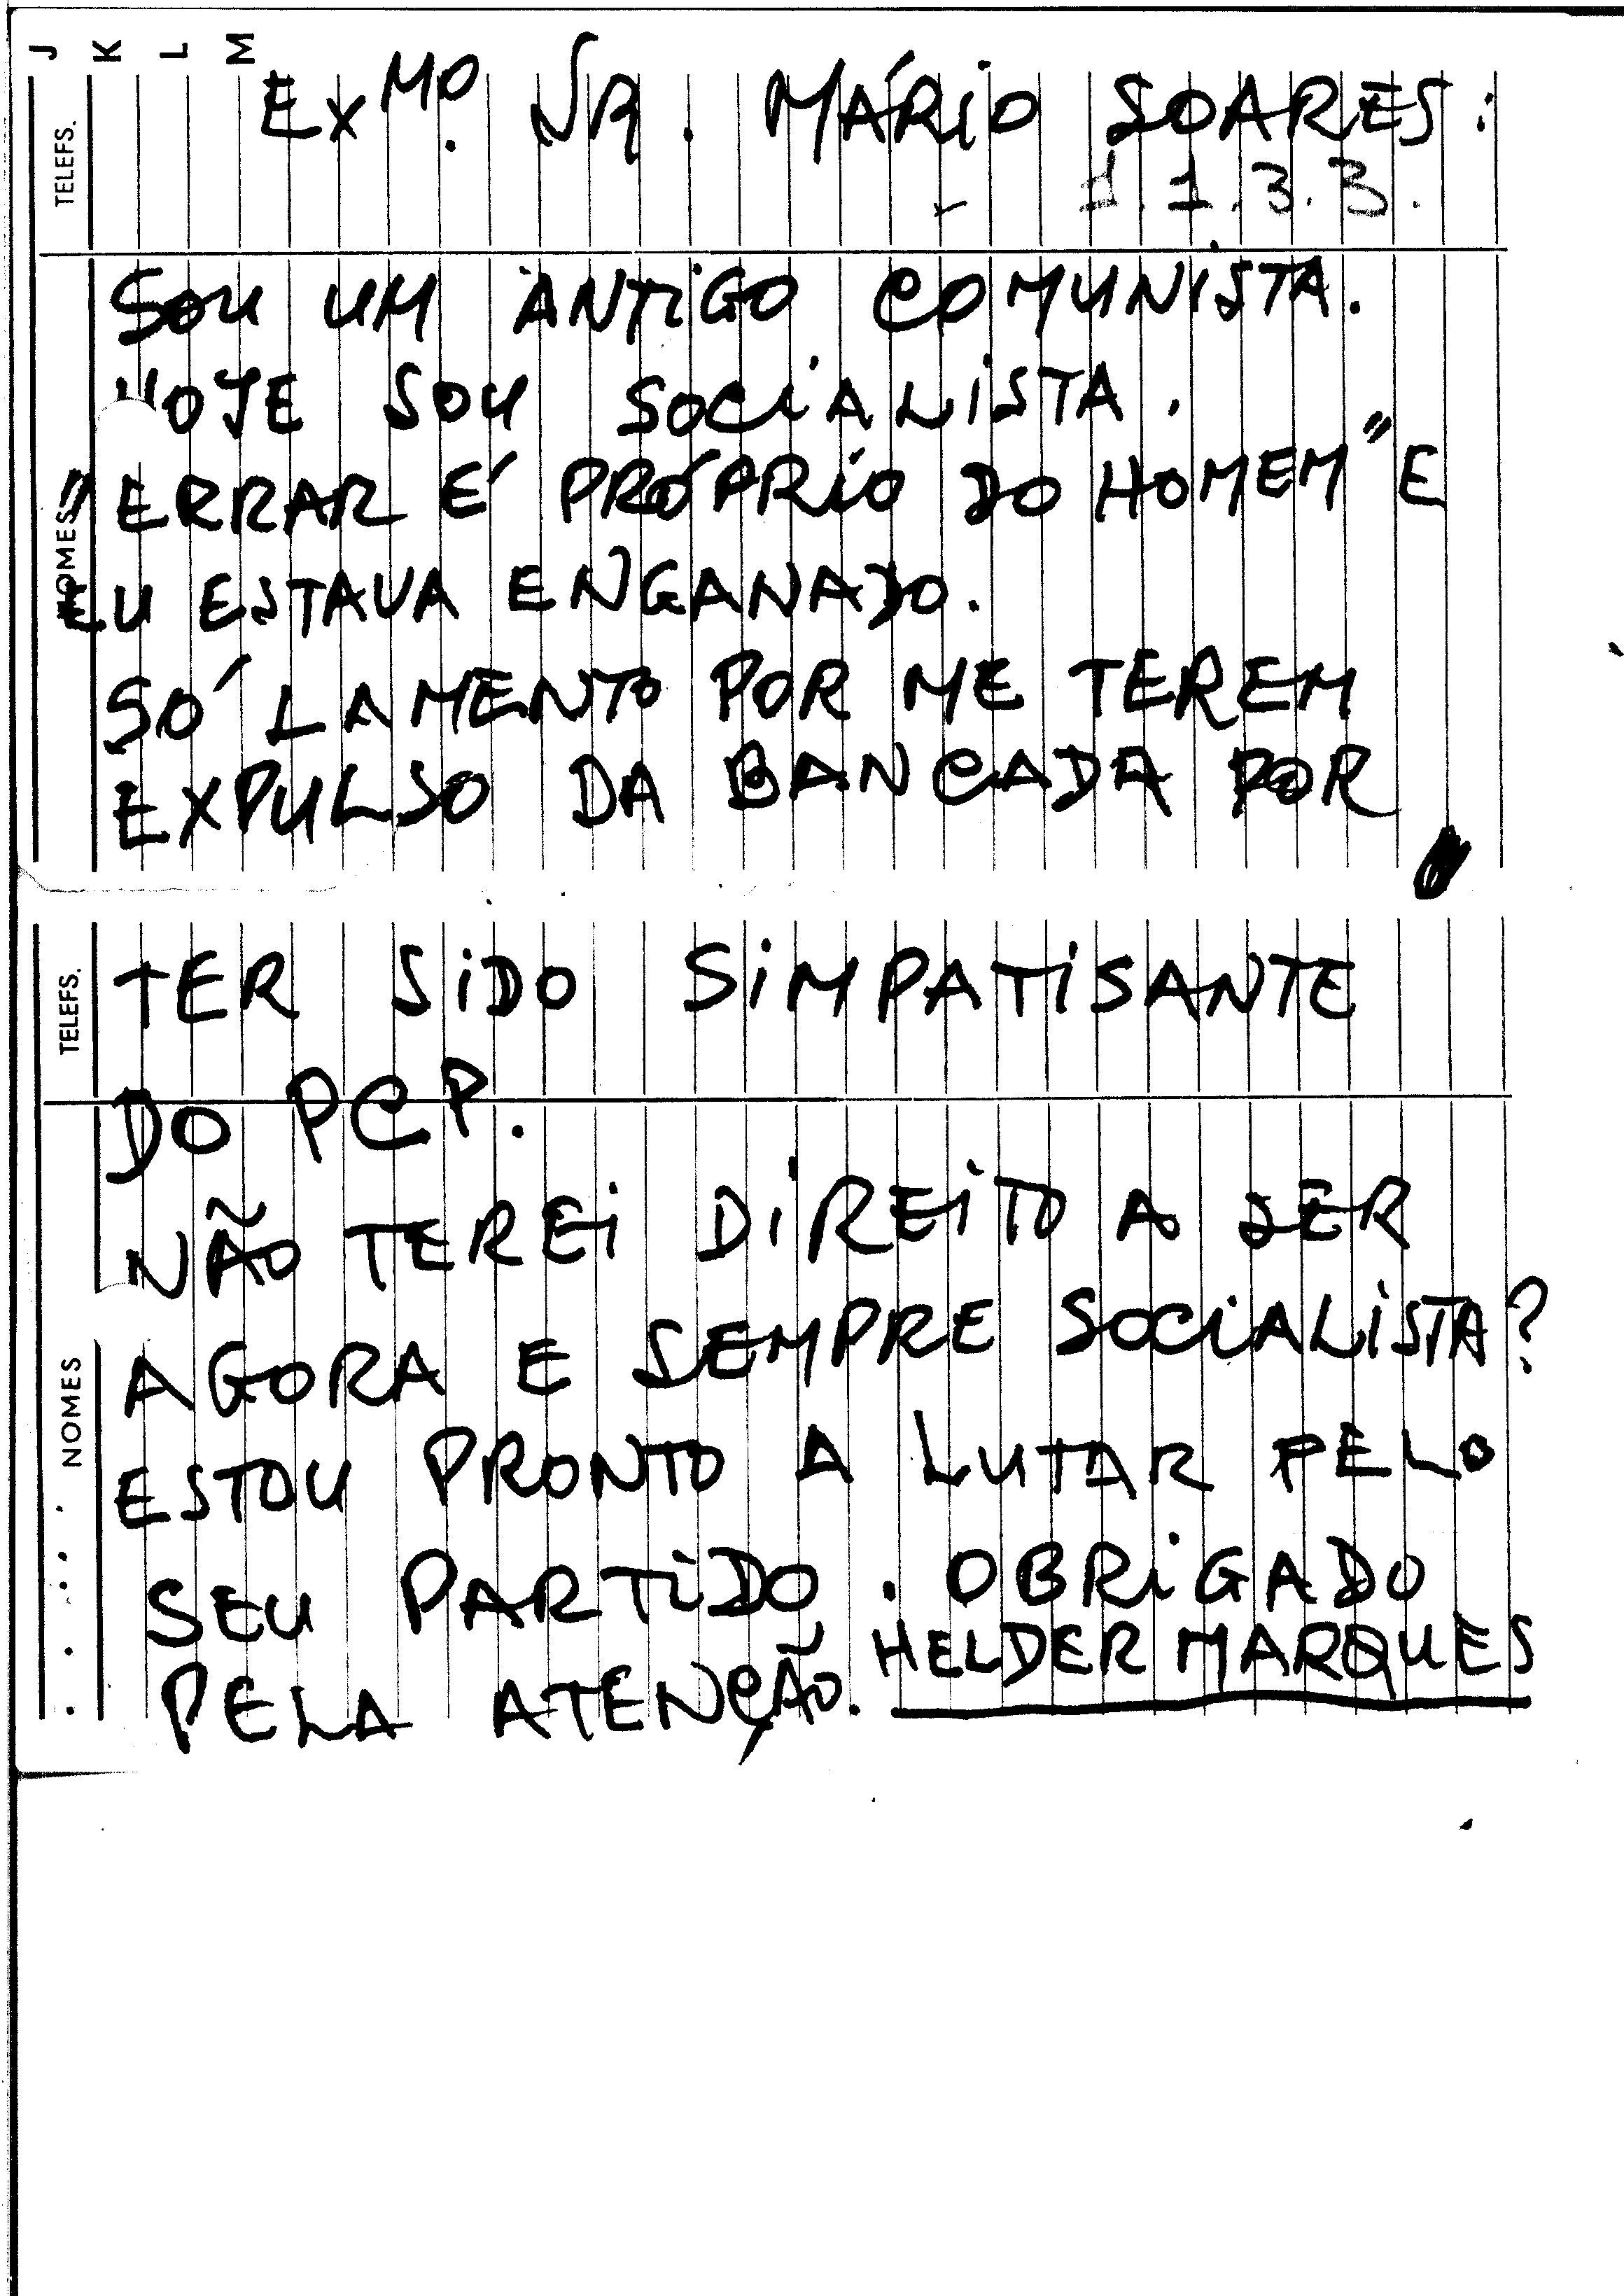 J K L M
EXMO. SR. MÁRIO SOARES:
TELEFS.
- 1.1.3.3.
SOU UM ANTIGO COMUNISTA.
HOJE SOU SOCIALISTA.
"ERRAR É PRÓPRIO DO HOMEM" E
NOMES
EU ESTAVA ENGANADO.
SÓ LAMENTO POR ME TEREM
EXPULSO DA BANCADA POR
TELEFS.
TER SIDO SIMPATISANTE
DO PCP.
NÃO TEREI DIREITO A SER
AGORA E SEMPRE SOCIALISTA?
NOMES
ESTOU PRONTO A LUTAR PELO
SEU PARTIDO. OBRIGADO
PELA ATENÇÃO. HELDER MARQUES